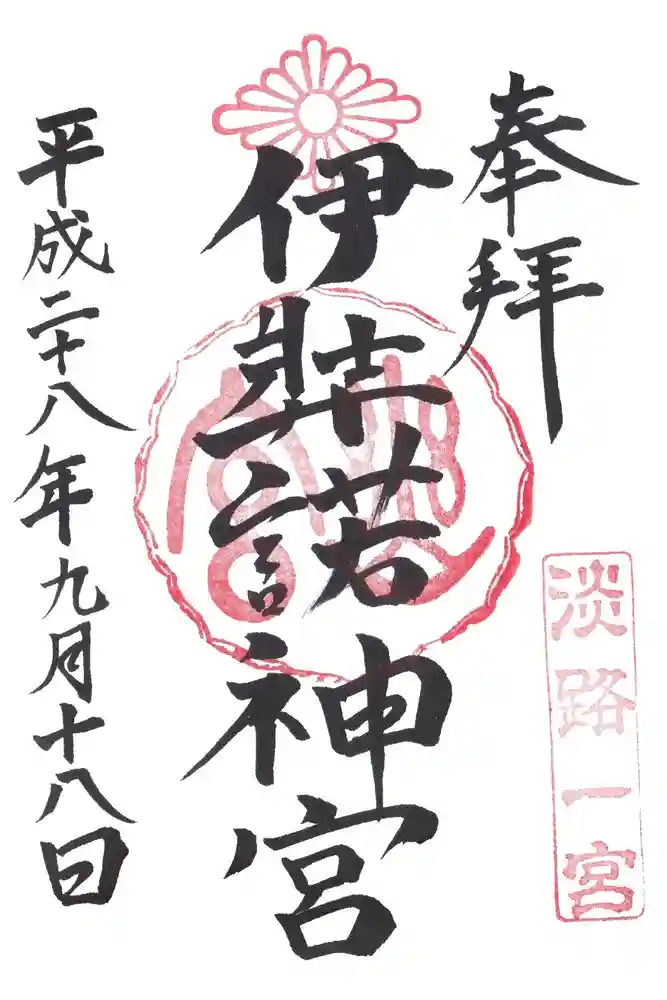 奉拝
淡路一宮
伊弉諾神宮
平成二十八年九月十八日